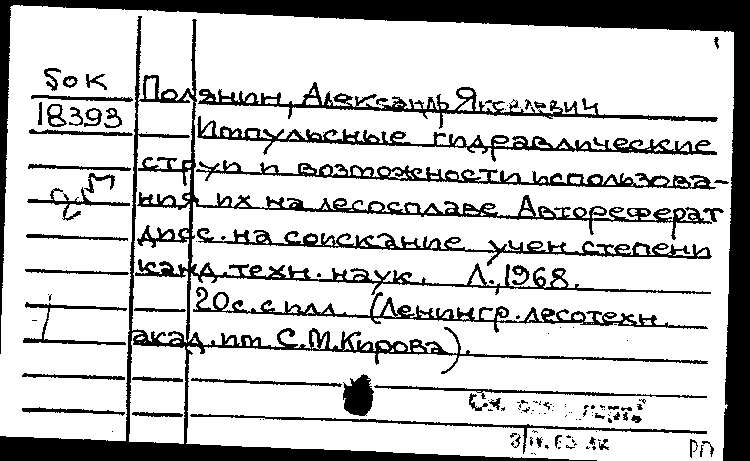 50К
18393
Полянин, Александр Яковлевич
Импульсные гидравлические
струи и возможности использова-
ния их на лесосплаве Автореферат
дисс. на соискание учен степени
канд. техн. наук. Л., 1968.
20с. с илл. (Ленингр. лесотехн.
акад. им С.М.Кирова).
См.
РП